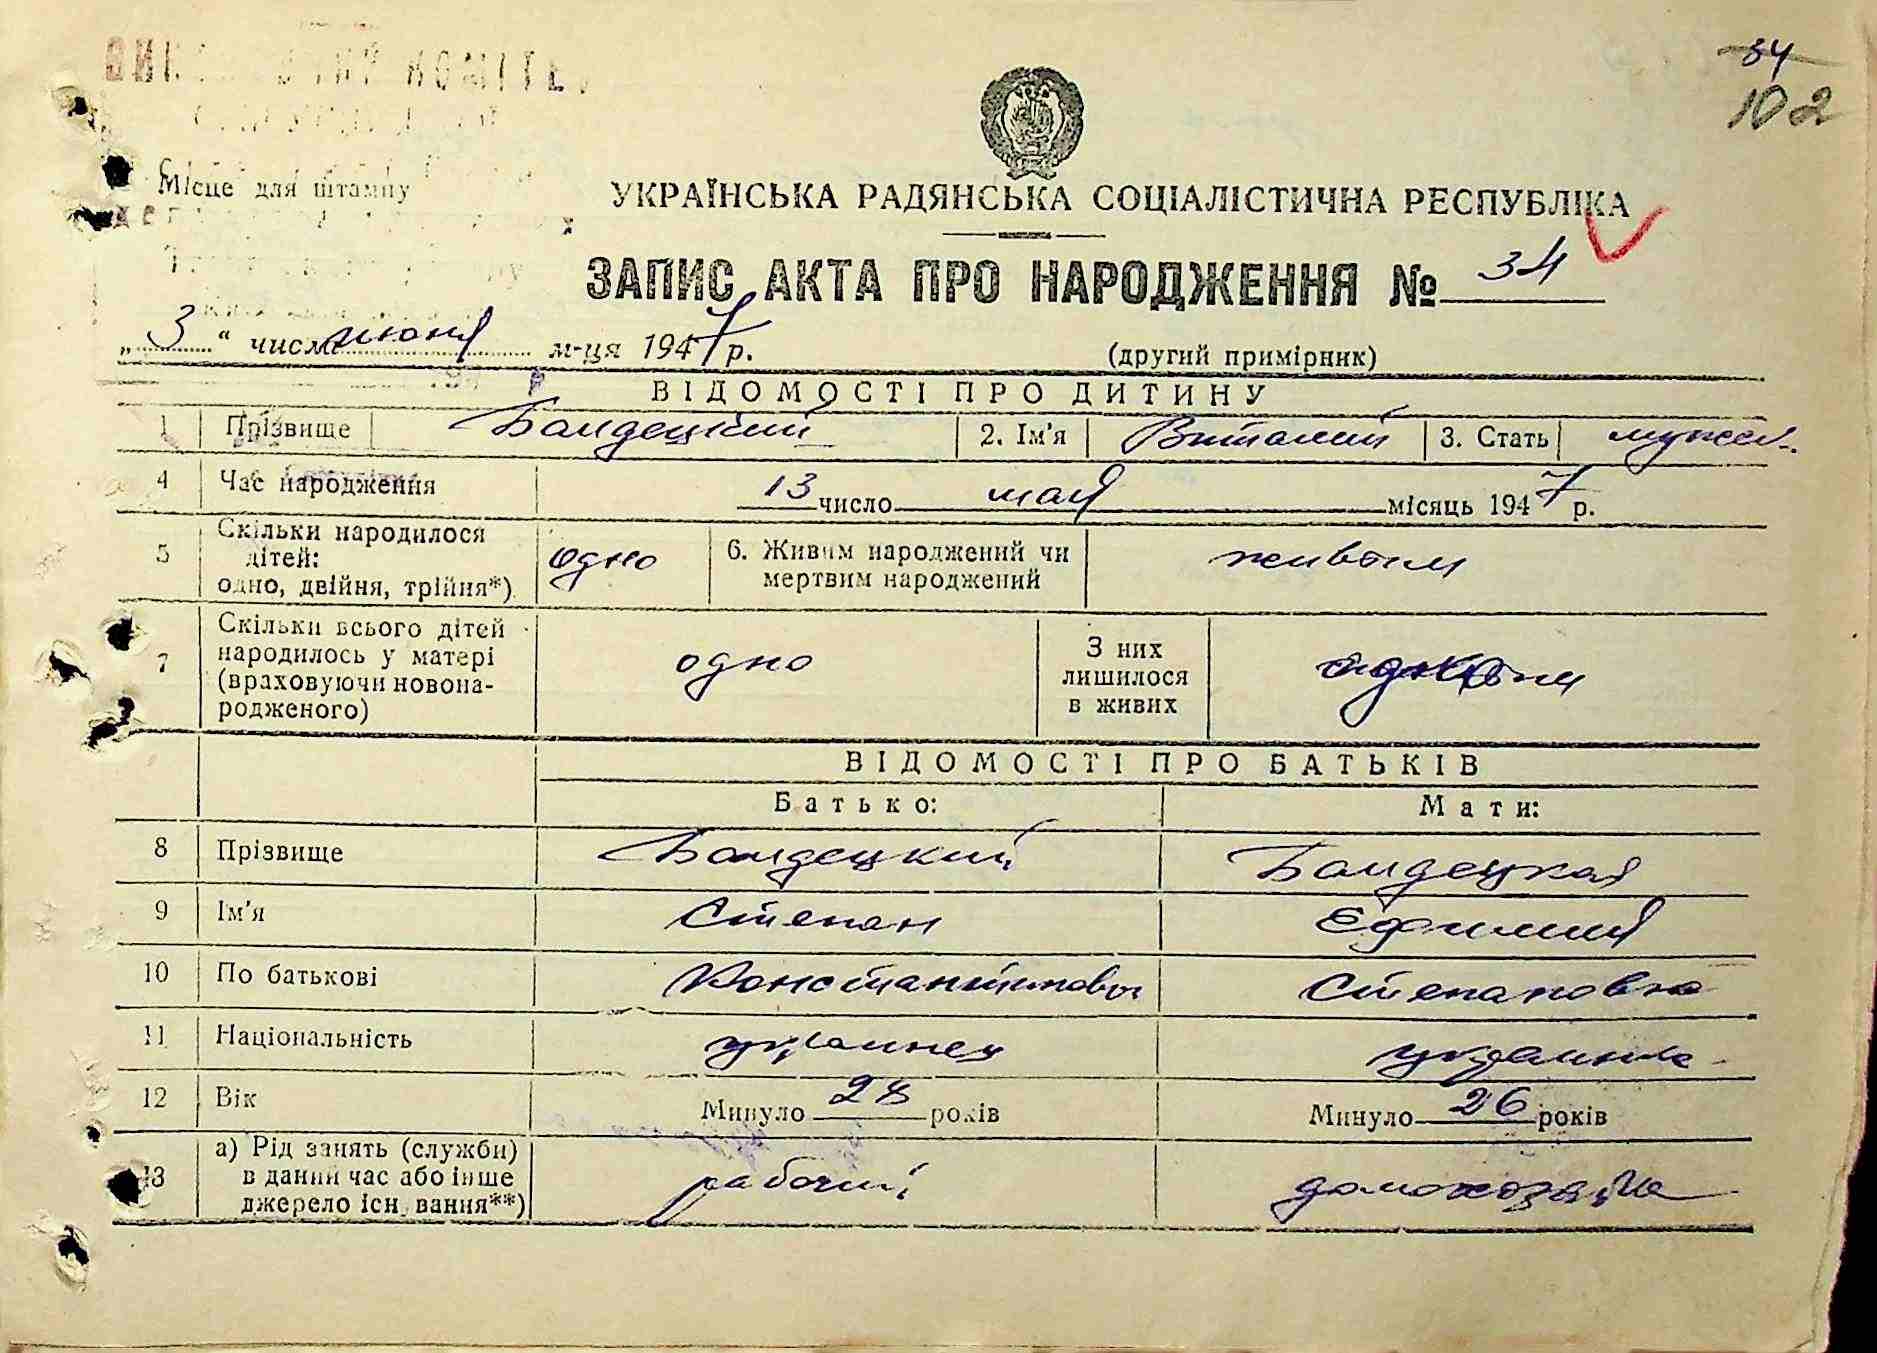 34
102
Місце для штампу
УКРАЇНСЬКА РАДЯНСЬКА СОЦІАЛІСТИЧНА РЕСПУБЛІКА
ЗАПИС АКТА ПРО НАРОДЖЕННЯ № 34
„3“ число июня м-ця 1947 р.
(другий примірник)
ВІДОМОСТІ ПРО ДИТИНУ
1 Прізвище Бандецкий 2. Ім'я Виталий 3. Стать мужск.
4 Час народження 13 число мая місяць 1947 р.
5 Скільки народилося дітей: одно, двійня, трійня*) одно 6. Живим народжений чи мертвим народжений живым
7 Скільки всього дітей народилось у матері (враховуючи новонародженого) одно З них лишилося в живих
ВІДОМОСТІ ПРО БАТЬКІВ
Батько: Мати:
8 Прізвище Бандецкий Бандецкая
9 Ім'я Степан Ефимия
10 По батькові Константинович Степановна
11 Національність украинец украинка
12 Вік Минуло 28 років Минуло 26 років
13 а) Рід занять (служби) в даний час або інше джерело існування**) рабочий домохозяйка